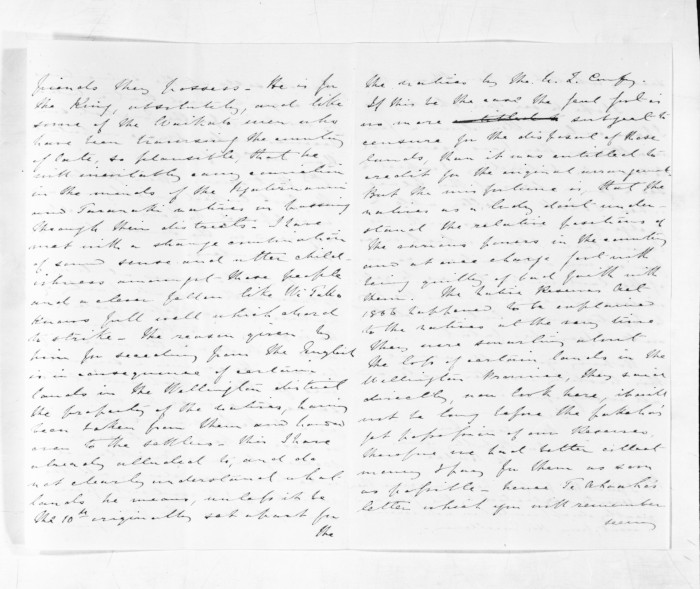 friends they possess - He is for
the King, absolutely, and like
some of the Waikato men who
have been traversing the country
of late, so plausible, that he
will inevitably carry conviction
in the minds of the Ngatiruanui
and Taranaki natives in passing
through their districts - I have
met with a strange combination
of sound sense and utter child-
ishness amongst these people
and a clever fellow like Wi Tako
knows full well which chord
to strike - The reason given by
him for seceding from the English
is in consequence of certain
lands in the Wellington district
the property of the natives, having
been taken from them and handed
over to the settlers - this I have
already alluded to, and do
not clearly understand what
lands he means, unless it be
the 10th originally set apart for
the
the natives by the N. Z. Compy.
If this be the case the past govt is
no more subject to
censure for the disposal of these
lands, than it was entitled to
credit for the original arrangemt
But the misfortune is, that the
natives as a body dont under-
stand the relative positions of
the various powers in the country
and at once charge govt with
being guilty of bad faith with
them. The Native Reserves Act
1856 happened to be explained
to the natives at the very time
they were smarting about
the loss of certain lands in the
Wellington Province, they said
directly, now look here, it will
not be long before the pakeha's
get possession of our Reserves,
therefore we had better collect
money & pay for them as soon
as possible - hence Te
letter which you will remember
seeing